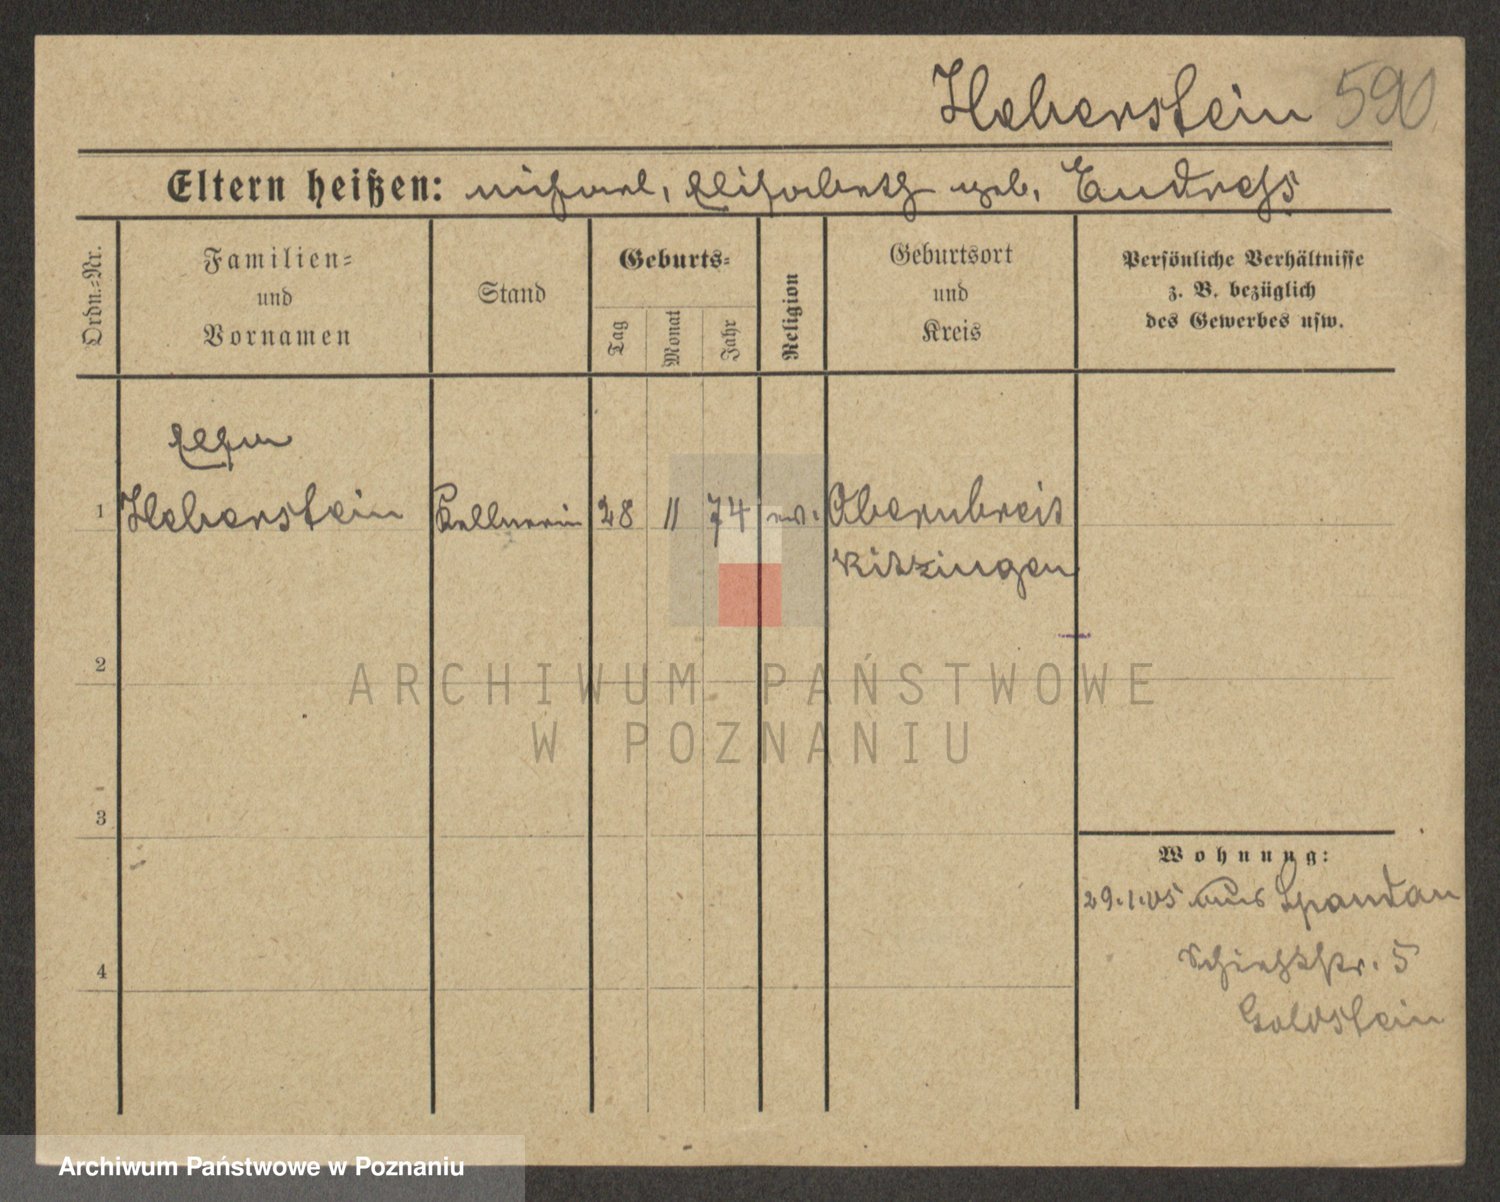 Heberstein 590
Eltern heißen: Michael, Elisabeth geb. Endreß
Ordn.=Nr.
Familien=
und
Vornamen
Stand
Geburts=
Tag
Monat
Jahr
Religion
Geburtsort
und
Kreis
Persönliche Verhältnisse
z. B. bezüglich
des Gewerbes usw.
1 Heberstein Kellnerin 28 11 74 ev. Obernbreit
Kitzingen
2
3
4
Wohnung:
29.1.05 aus Spandau
Schießstr. 5
Goldstein
ARCHIWUM PAŃSTWOWE
W POZNANIU
Archiwum Państwowe w Poznaniu